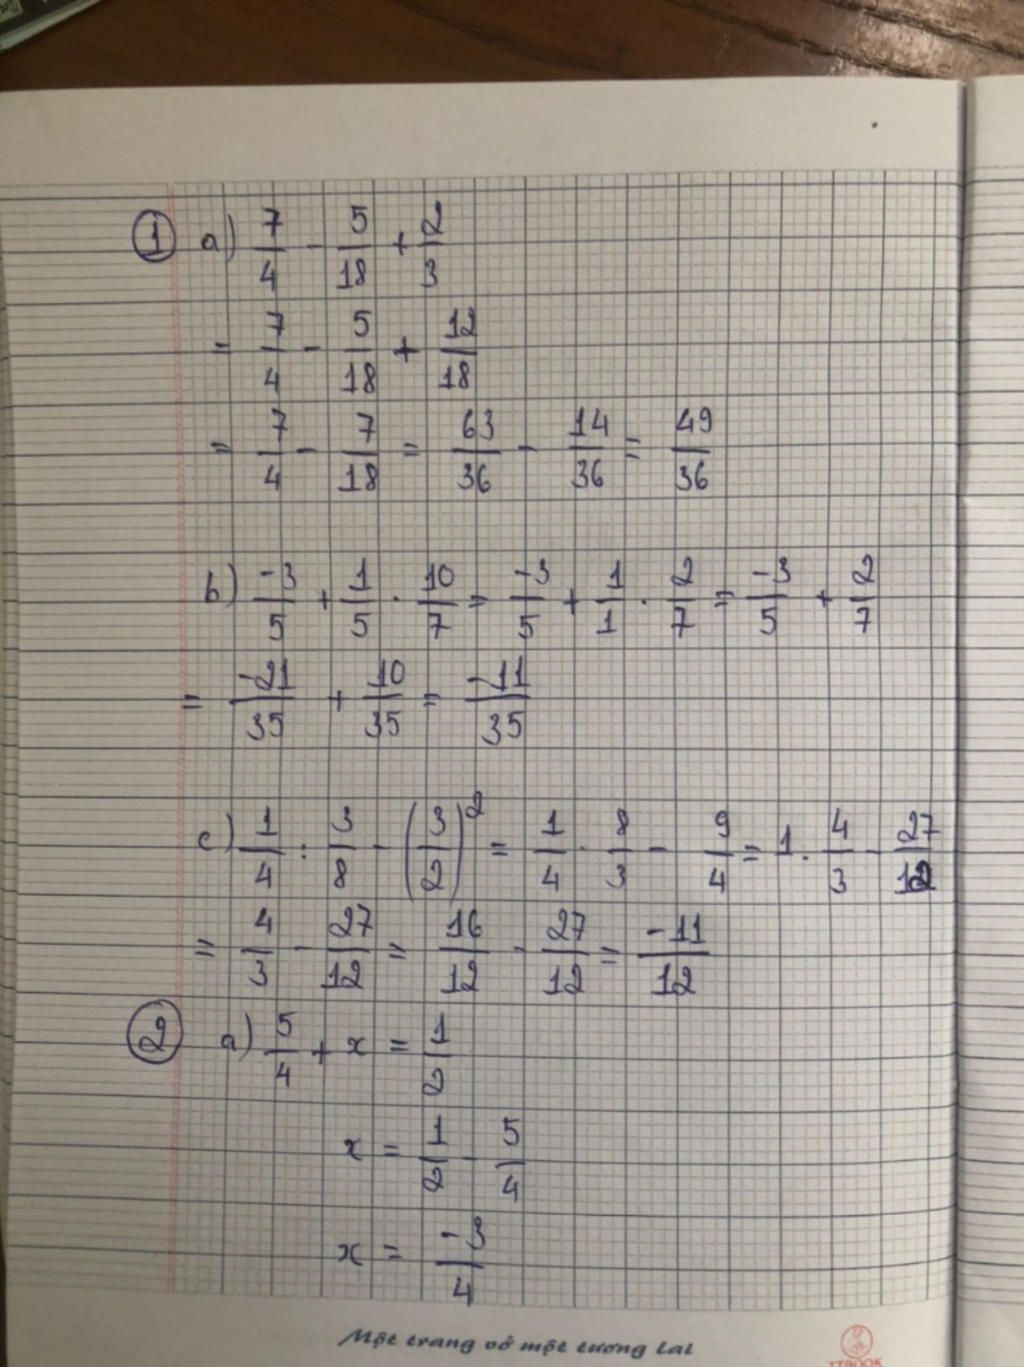 ① a) 7/4 - 5/18 + 2/3
= 7/4 - 5/18 + 12/18
= 7/4 - 7/18 = 63/36 - 14/36 = 49/36
b) -3/5 + 1/5 . 10/7 = -3/5 + 1/1 . 2/7 = -3/5 + 2/7
= -21/35 + 10/35 = -11/35
c) 1/4 : 3/8 - (3/2)² = 1/4 . 8/3 - 9/4 = 1 . 4/3 - 27/12
= 4/3 - 27/12 = 16/12 - 27/12 = -11/12
② a) 5/4 + x = 1/2
x = 1/2 - 5/4
x = -3/4
Một trang vở một tương lai
TTBOOK